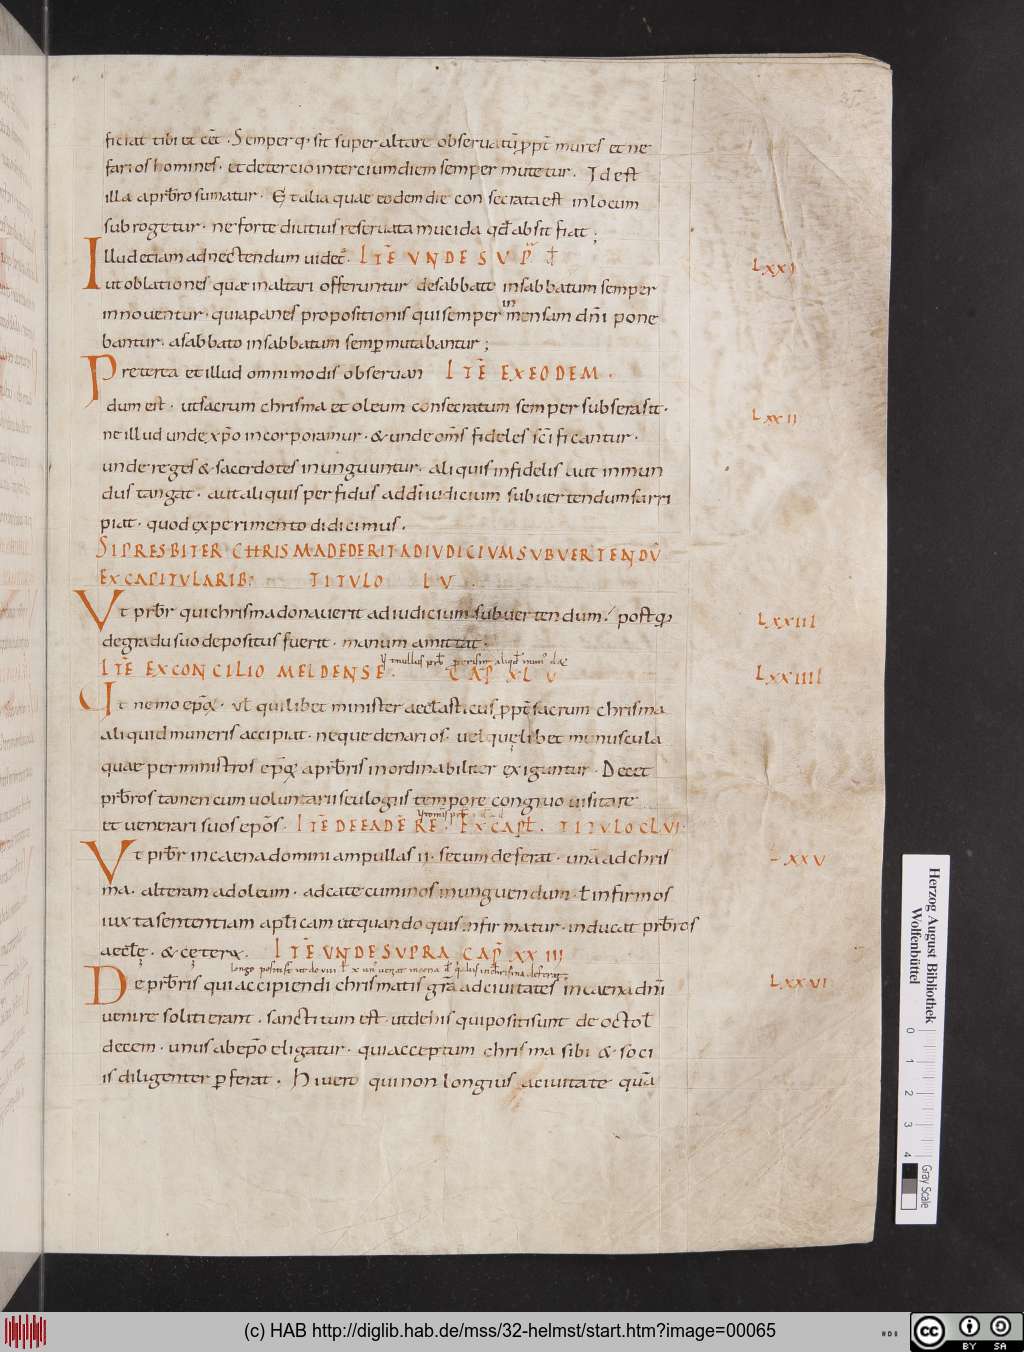 ficiat tibi et cet̄ · Semper q· sit super altare obseruatū ꝓpt̄ mures et ne
farios homines · et de tercio in tercium diem semper mutetur . Id est
illa a prb̄ro sumatur · Et alia quae eodem die consecrata est in locum
subrogetur · ne forte diutius reseruata mucida qd̄ absit fiat ;
Illud etiam adnectendum uidet̄ · ITĒ VNDE SVP̄
LXXI
ut oblationes quae in altari offeruntur de sabbato in sabbatum semper
innouentur · quia panes propositionis qui semper in mensam dn̄i pone
bantur · a sabbato in sabbatum semp mutabantur ;
Preterea et illud omnimodis obseruan ITĒ EX EODEM ·
LXXII
dum est · ut sacrum chrisma et oleum consecratum semper sub sera sit ·
ne illud unde xp̄o incorporamur · & unde om̄s fideles sc̄ificantur ·
unde reges & sacerdotes inunguuntur · aliquis infidelis aut inmun
dus tangat · aut aliquis perfidus ad dī iudicium subuertendum sarri
piat · quod experimento didicimus .
SI PRESBITER CHRISMA DEDERIT AD IVDICIVM SVBVERTENDŪ
EX CAPITVLARIB: TITVLO LV
Vt prb̄r qui chrisma donauerit ad iudicium subuertendum / postꝙ
LXXIII
de gradu suo depositus fuerit · manum amittat ·
ITĒ EX CONCILIO MELDENSE · CAP̄ XLV
LXXIIII
Ut nemo ep̄oꝝ · ul̄ quilibet minister aeccl̄asticus ꝓpt̄ sacrum chrisma
aliquid muneris accipiat · neque denarios · uel quęlibet munuscula
quae per ministros ep̄oꝝ a prb̄ris inordinabiliter exiguntur · Decet
prb̄ros tamen cum uoluntariis eulogiis tempore congruo uisitare
et uenerari suos ep̄os · ITĒ DE EADĒ RE · EX CAPL̄ . TITVLO CLVI ·
Vt prb̄r in caena domini ampullas II · secum deferat · unā ad chris
XXV
ma · alteram ad oleum · ad catecuminos inunguendum · l̄ infirmos
iuxta sententiam apl̄icam ut quando quis infirmatur · inducat prb̄ros
aeccl̄ę · & cętera · ITĒ VNDE SVPRA CAP̄ XXIII
longe positis
De prb̄ris qui accipiendi chrismatis gr̄a ad ciuitates in caena dn̄i
LXXVI
uenire soliti erant . sanctitum est · ut de his qui positi sunt de octo l̄
decem · unus ab ep̄o eligatur · qui acceptum chrisma sibi & soci
is diligenter ꝑferat . Hi uero qui non longius a ciuitate quā
Herzog August Bibliothek
Wolfenbüttel
0 1 2 3 4
Gray Scale
(c) HAB http://diglib.hab.de/mss/32-helmst/start.htm?image=00065
cc BY SA